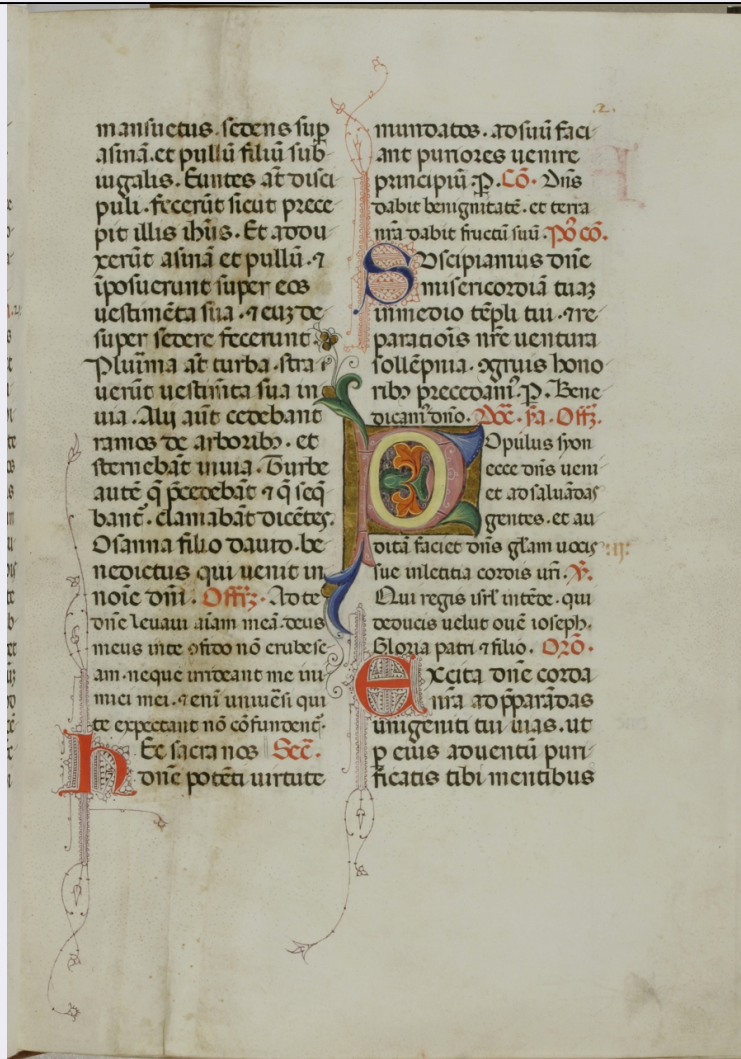 .2.
mansuetus. sedens sup̄
asinā. et pullū filiū sub
iugalis. Euntes at̄ disci
puli. fecerūt sicut prece
pit illis ih̄us. Et addu
xerūt asinā et pullū. ⁊
īposuerunt super eos
uestimēta sua. ⁊ euꝫ de
super sedere fecerunt.
Pluⁱma at̄ turba. stra
uerūt uestim̄ta sua in
uia. Alij aūt cedebant
ramos de arboribꝯ. et
sternebāt inuia. Turbe
autē q̄ p̄cedebāt ⁊ q̄ seq̄
bant̄. clamabāt dicētes.
Osanna filio dauid. be
nedictus qui uenit in
noīe dn̄i. Offꝫ. Ad te
dn̄e leuaui aīam meā. deus
meus inte ꝯfido nō erubesc
am. neque irrideant me ini
mici mei. ⁊ enī uniuēsi qui
te expectant nō cōfundent̄.
HEc sacra nos Sec̄.
dn̄e potēti uirtute
mundatos. ad suū faci
ant puriores uenire
principiū. P̱. Cō. Dn̄s
dabit benignitatē. et terra
nr̄a dabit fructū suū. Pō cō.
SVscipiamus dn̄e
misericordiā tuaꝫ
inmedio tēpli tui. ⁊ re
paratiōis nr̄e uentura
sollēpnia. ꝯgruis hono
ribꝯ precedam᷒. P̱. Bene
dicam᷒ dn̄o. Dōc. ſcꝺa. Offꝫ.
POpulus syon
ecce dn̄s ueni
et ad saluādas
gentes. et au
ditā faciet dn̄s gl̄am uocis
sue inletitia cordis ur̄i. ℣.
Qui regis isr̄l intēde. qui
deducis uelut ouē ioseph.
Gloria patri ⁊ filio. Orō.
Excita dn̄e corda
nr̄a ad p̄parādas
unigeniti tui uias. ut
ꝑ eius aduentū puri
ficatis tibi mentibus